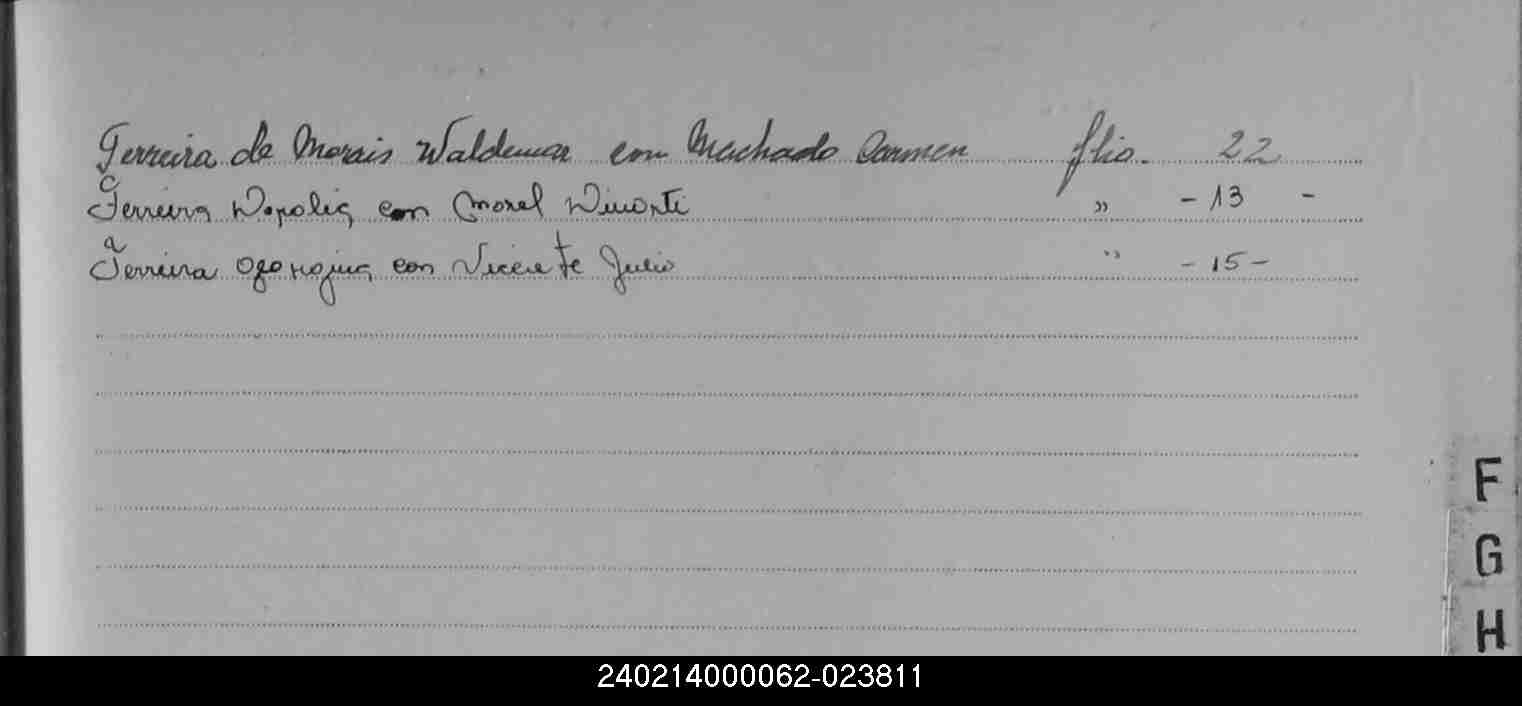 Ferreira de Morais Waldemar con Machado Carmen flio. 22
Ferreira con Morel " - 13 -
Ferreira con Vicente Julio " - 15 -
F
G
H
240214000062-023811